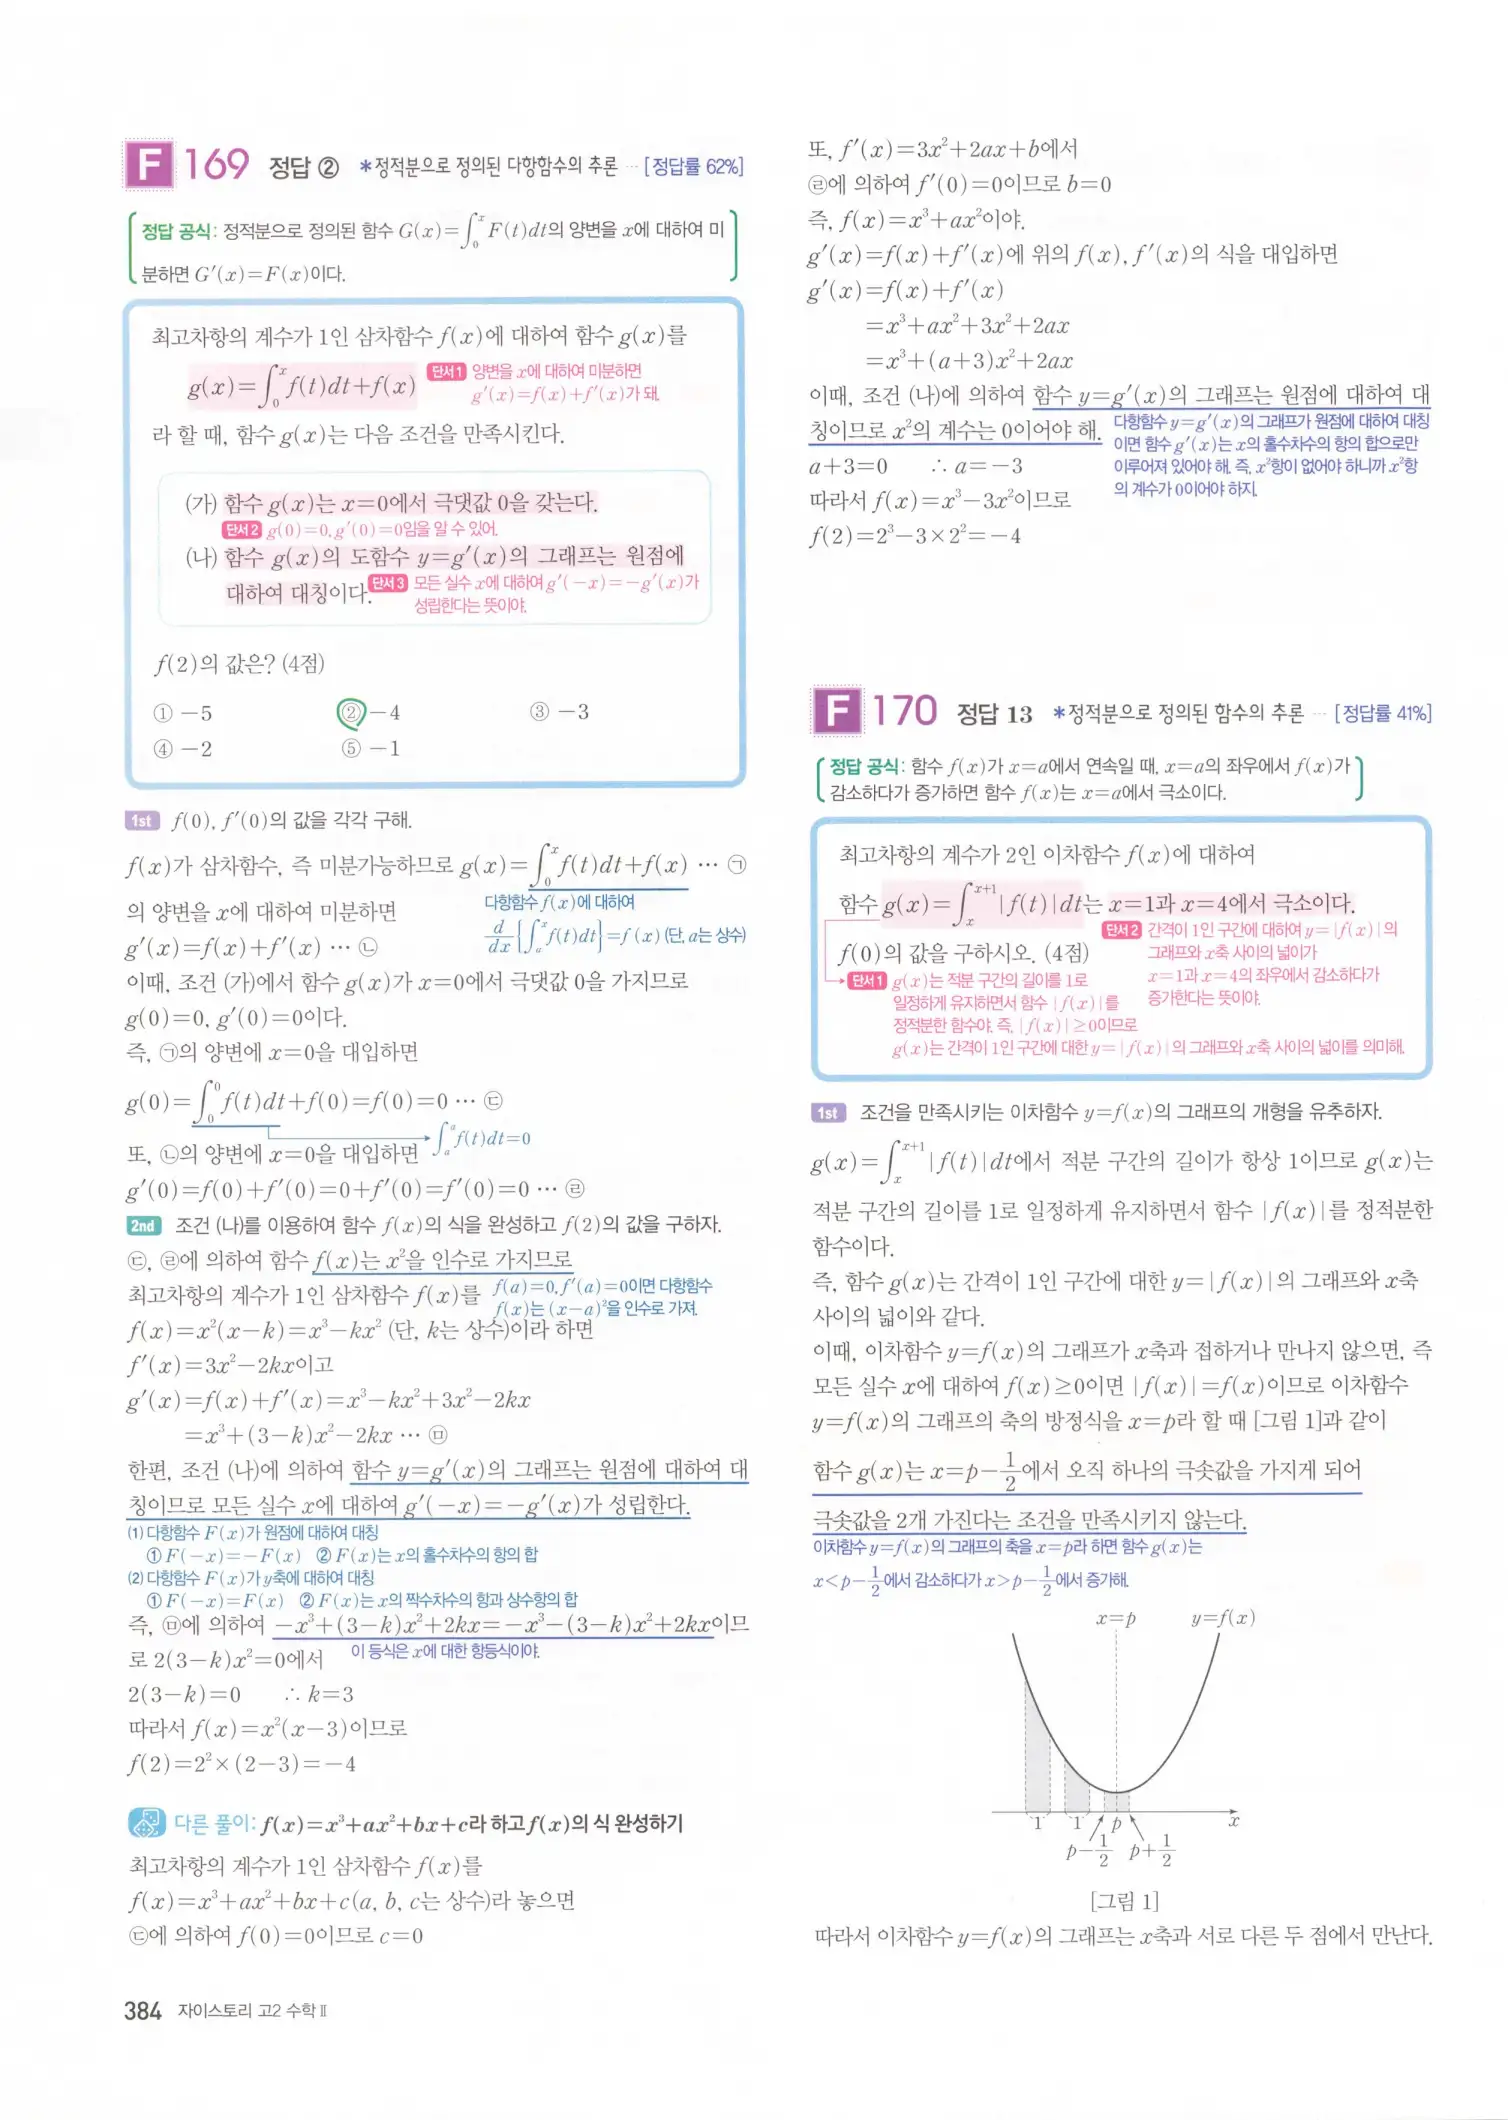 F 169 정답 ② *정적분으로 정의된 다항함수의 추론 ··· [정답률 62%]
정답 공식: 정적분으로 정의된 함수 G(x)=∫₀ˣ F(t)dt의 양변을 x에 대하여 미
분하면 G′(x)=F(x)이다.
최고차항의 계수가 1인 삼차함수 f(x)에 대하여 함수 g(x)를
g(x)=∫₀ˣ f(t)dt+f(x) 단서1 양변을 x에 대하여 미분하면
g′(x)=f(x)+f′(x)가 돼.
라 할 때, 함수 g(x)는 다음 조건을 만족시킨다.
(가) 함수 g(x)는 x=0에서 극댓값 0을 갖는다.
단서2 g(0)=0, g′(0)=0임을 알 수 있어.
(나) 함수 g(x)의 도함수 y=g′(x)의 그래프는 원점에
대하여 대칭이다. 단서3 모든 실수 x에 대하여 g′(−x)=−g′(x)가
성립한다는 뜻이야.
f(2)의 값은? (4점)
① −5 ② −4 ③ −3
④ −2 ⑤ −1
1st f(0), f′(0)의 값을 각각 구해.
f(x)가 삼차함수, 즉 미분가능하므로 g(x)=∫₀ˣ f(t)dt+f(x) ··· ㉠
의 양변을 x에 대하여 미분하면
다항함수 f(x)에 대하여
g′(x)=f(x)+f′(x) ··· ㉡
d/dx{∫ₐˣ f(t)dt}=f(x) (단, a는 상수)
이때, 조건 (가)에서 함수 g(x)가 x=0에서 극댓값 0을 가지므로
g(0)=0, g′(0)=0이다.
즉, ㉠의 양변에 x=0을 대입하면
g(0)=∫₀⁰ f(t)dt+f(0)=f(0)=0 ··· ㉢
∫ₐᵃ f(t)dt=0
또, ㉡의 양변에 x=0을 대입하면
g′(0)=f(0)+f′(0)=0+f′(0)=f′(0)=0 ··· ㉣
2nd 조건 (나)를 이용하여 함수 f(x)의 식을 완성하고 f(2)의 값을 구하자.
㉢, ㉣에 의하여 함수 f(x)는 x²을 인수로 가지므로
최고차항의 계수가 1인 삼차함수 f(x)를
f(a)=0, f′(a)=0이면 다항함수
f(x)는 (x−a)²을 인수로 가져.
f(x)=x²(x−k)=x³−kx² (단, k는 상수)이라 하면
f′(x)=3x²−2kx이고
g′(x)=f(x)+f′(x)=x³−kx²+3x²−2kx
=x³+(3−k)x²−2kx ··· ㉤
한편, 조건 (나)에 의하여 함수 y=g′(x)의 그래프는 원점에 대하여 대
칭이므로 모든 실수 x에 대하여 g′(−x)=−g′(x)가 성립한다.
(1) 다항함수 F(x)가 원점에 대하여 대칭
① F(−x)=−F(x) ② F(x)는 x의 홀수차수의 항의 합
(2) 다항함수 F(x)가 y축에 대하여 대칭
① F(−x)=F(x) ② F(x)는 x의 짝수차수의 항과 상수항의 합
즉, ㉤에 의하여 −x³+(3−k)x²+2kx=−x³−(3−k)x²+2kx이므
로 2(3−k)x²=0에서
이 등식은 x에 대한 항등식이야.
2(3−k)=0 ∴ k=3
따라서 f(x)=x²(x−3)이므로
f(2)=2²×(2−3)=−4
다른 풀이: f(x)=x³+ax²+bx+c라 하고 f(x)의 식 완성하기
최고차항의 계수가 1인 삼차함수 f(x)를
f(x)=x³+ax²+bx+c(a, b, c는 상수)라 놓으면
㉢에 의하여 f(0)=0이므로 c=0
384 자이스토리 고2 수학 Ⅱ
또, f′(x)=3x²+2ax+b에서
㉣에 의하여 f′(0)=0이므로 b=0
즉, f(x)=x³+ax²이야.
g′(x)=f(x)+f′(x)에 위의 f(x), f′(x)의 식을 대입하면
g′(x)=f(x)+f′(x)
=x³+ax²+3x²+2ax
=x³+(a+3)x²+2ax
이때, 조건 (나)에 의하여 함수 y=g′(x)의 그래프는 원점에 대하여 대
칭이므로 x²의 계수는 0이어야 해.
다항함수 y=g′(x)의 그래프가 원점에 대하여 대칭
이면 함수 g′(x)는 x의 홀수차수의 항의 합으로만
이루어져 있어야 해. 즉, x²항이 없어야 하니까 x²항
의 계수가 0이어야 하지.
a+3=0 ∴ a=−3
따라서 f(x)=x³−3x²이므로
f(2)=2³−3×2²=−4
F 170 정답 13 *정적분으로 정의된 함수의 추론 ··· [정답률 41%]
정답 공식: 함수 f(x)가 x=a에서 연속일 때, x=a의 좌우에서 f(x)가
감소하다가 증가하면 함수 f(x)는 x=a에서 극소이다.
최고차항의 계수가 2인 이차함수 f(x)에 대하여
함수 g(x)=∫ₓˣ⁺¹ |f(t)|dt는 x=1과 x=4에서 극소이다.
단서2 간격이 1인 구간에 대하여 y=|f(x)|의
그래프와 x축 사이의 넓이가
x=1과 x=4의 좌우에서 감소하다가
증가한다는 뜻이야.
f(0)의 값을 구하시오. (4점)
단서1 g(x)는 적분 구간의 길이를 1로
일정하게 유지하면서 함수 |f(x)|를
정적분한 함수야. 즉, |f(x)|≥0이므로
g(x)는 간격이 1인 구간에 대한 y=|f(x)|의 그래프와 x축 사이의 넓이를 의미해.
1st 조건을 만족시키는 이차함수 y=f(x)의 그래프의 개형을 유추하자.
g(x)=∫ₓˣ⁺¹ |f(t)|dt에서 적분 구간의 길이가 항상 1이므로 g(x)는
적분 구간의 길이를 1로 일정하게 유지하면서 함수 |f(x)|를 정적분한
함수이다.
즉, 함수 g(x)는 간격이 1인 구간에 대한 y=|f(x)|의 그래프와 x축
사이의 넓이와 같다.
이때, 이차함수 y=f(x)의 그래프가 x축과 접하거나 만나지 않으면, 즉
모든 실수 x에 대하여 f(x)≥0이면 |f(x)|=f(x)이므로 이차함수
y=f(x)의 그래프의 축의 방정식을 x=p라 할 때 [그림 1]과 같이
함수 g(x)는 x=p−1/2에서 오직 하나의 극솟값을 가지게 되어
극솟값을 2개 가진다는 조건을 만족시키지 않는다.
이차함수 y=f(x)의 그래프의 축을 x=p라 하면 함수 g(x)는
x<p−1/2에서 감소하다가 x>p−1/2에서 증가해.
x=p y=f(x)
1 1 p x
p−1/2 p+1/2
[그림 1]
따라서 이차함수 y=f(x)의 그래프는 x축과 서로 다른 두 점에서 만난다.